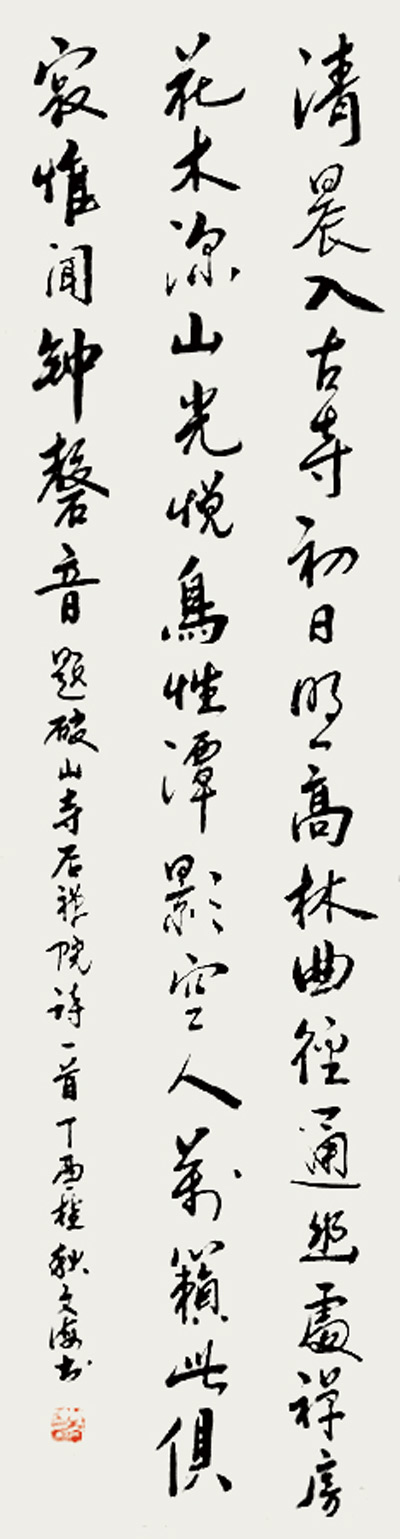 清晨入古寺初日照高林曲徑通幽處禅房
花木深山光悦鳥性潭影空人萬籟此俱
寂惟闻钟磬音题破山寺后禅院诗一首丁酉桂秋文海书